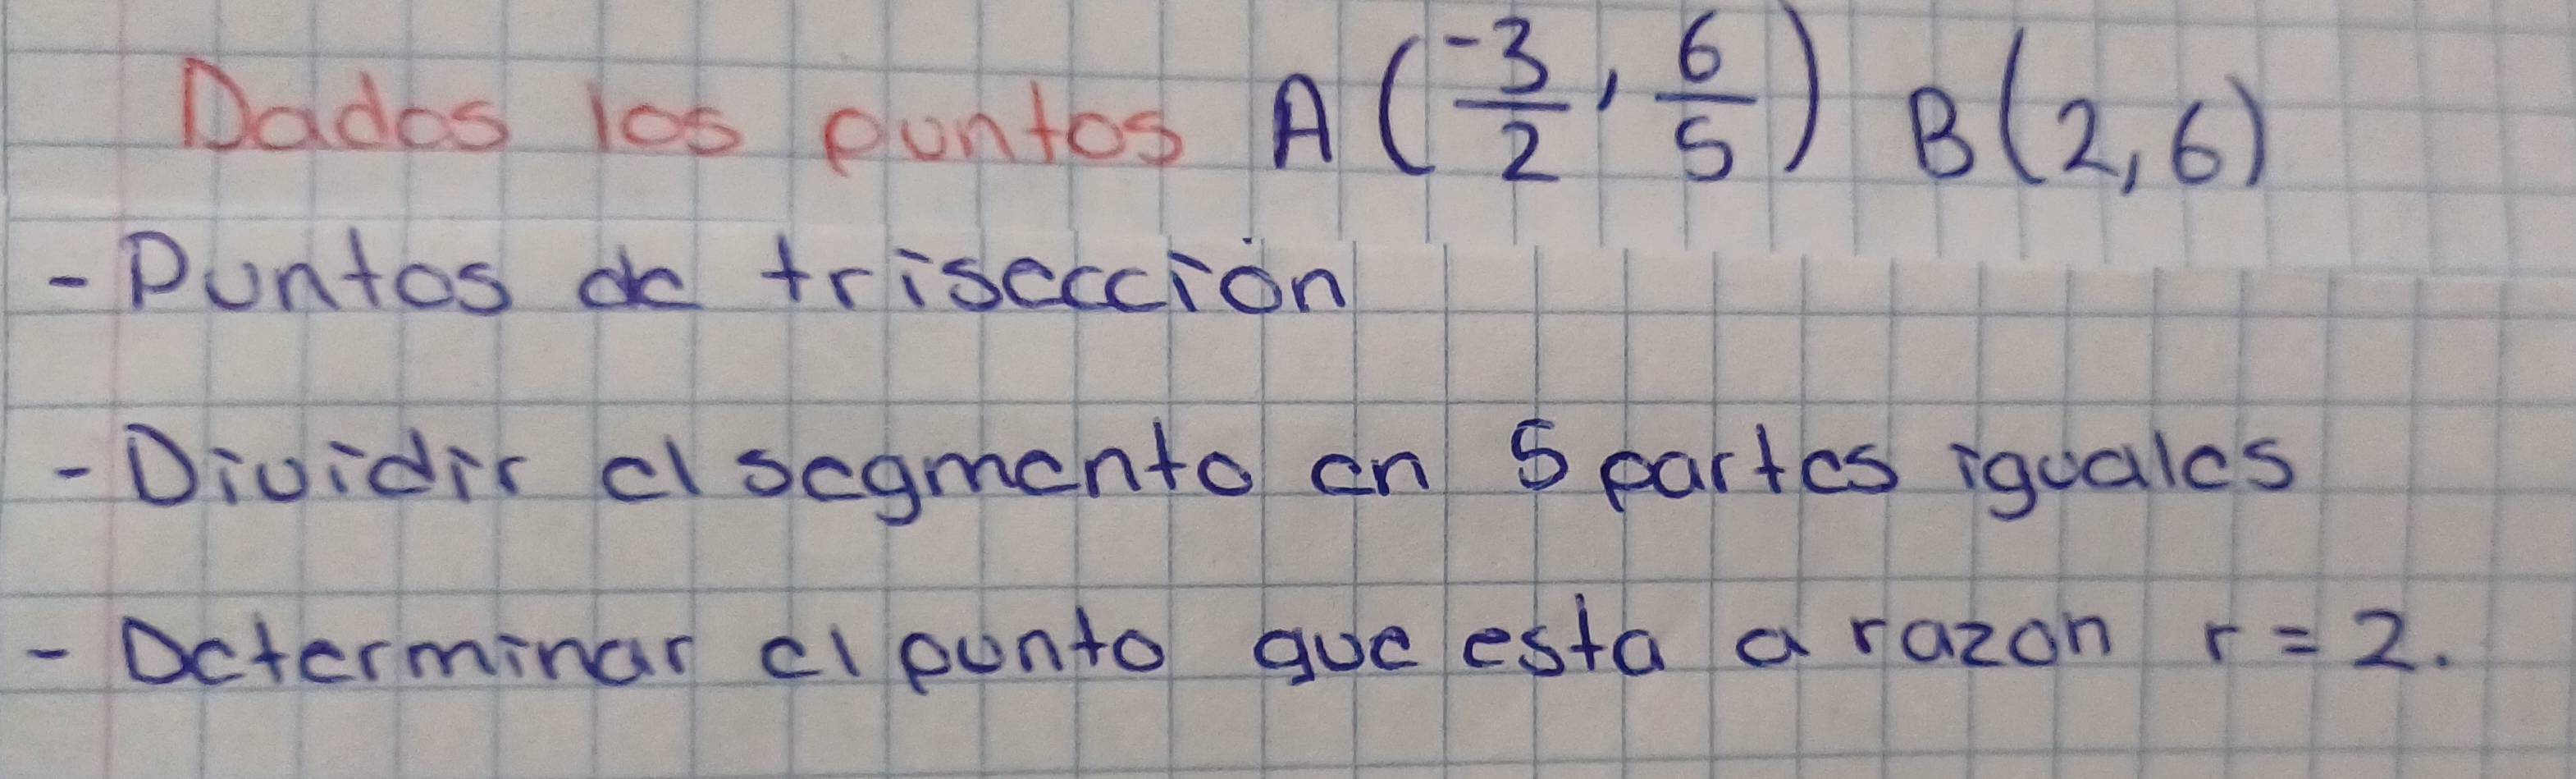 Dados los puntos A(-3/2, 6/5) B(2,6)
- Puntos de trisección
- Dividir el segmento en 5 partes iguales
- Determinar el punto que esta a razon r = 2.